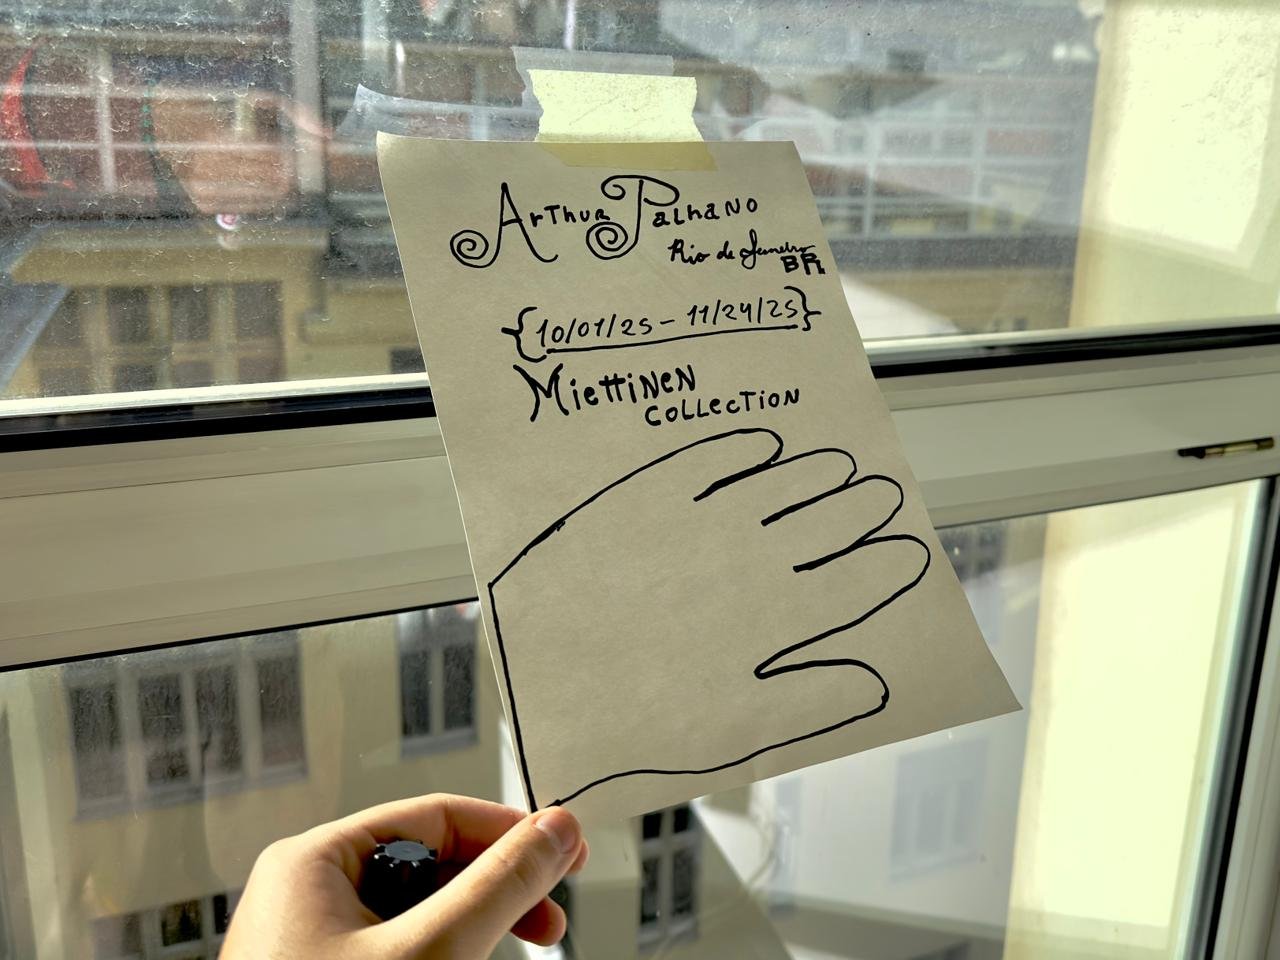 Arthur Palhano
Rio de Janeiro
BR
{10/01/25 - 11/24/25}
Miettinen
collection